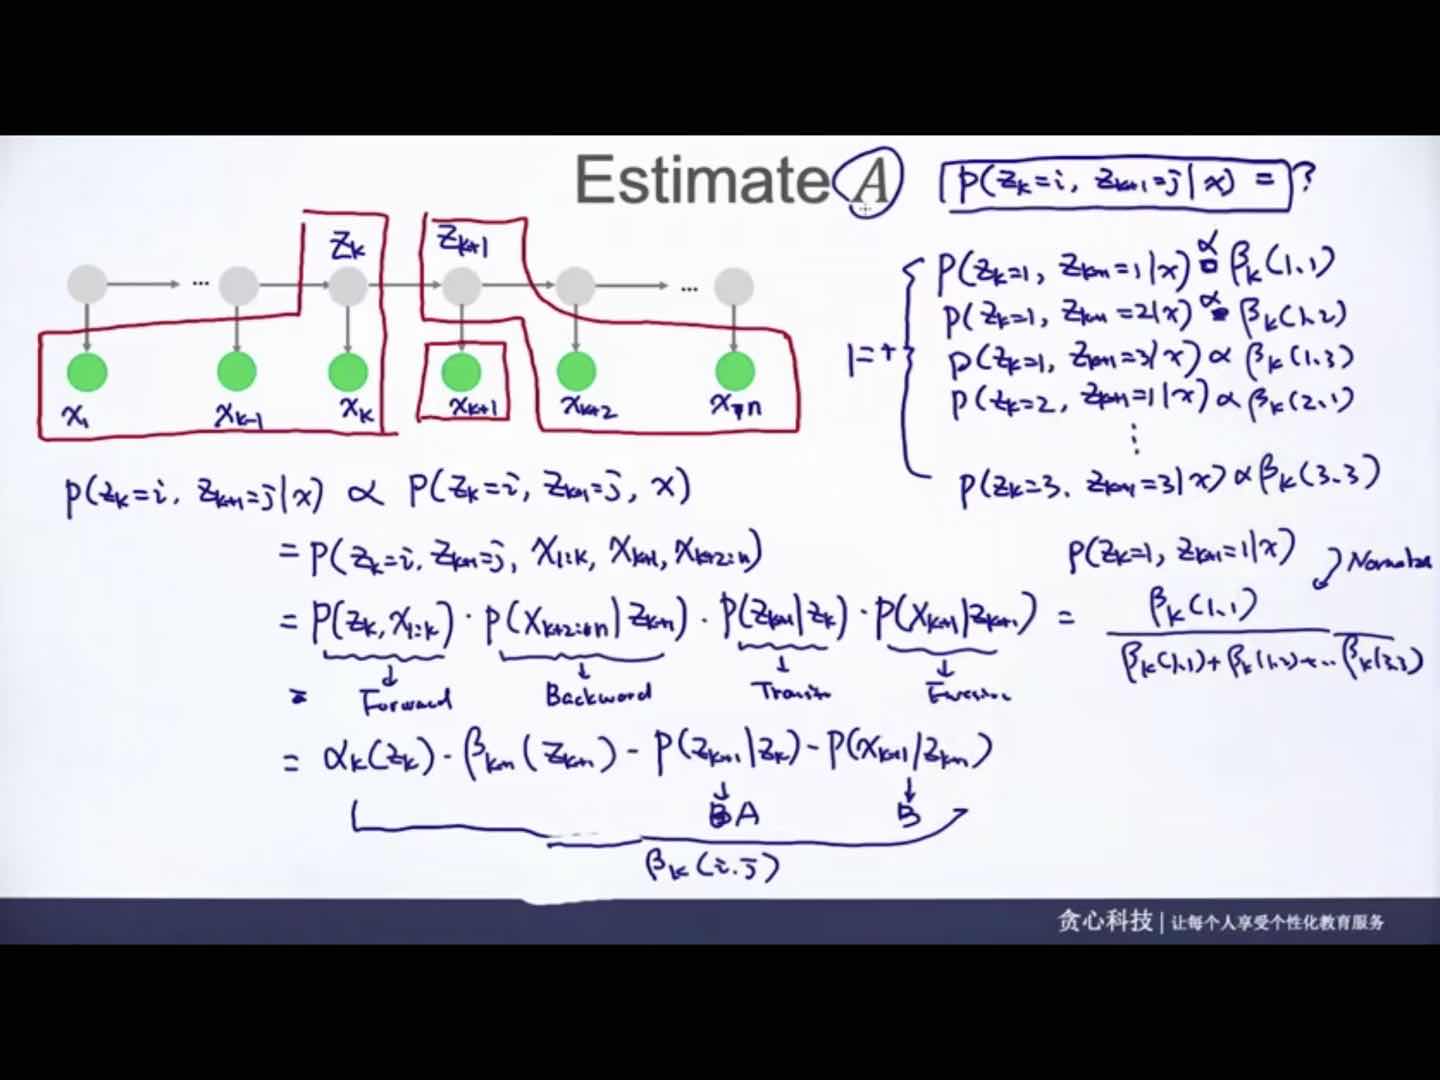 Estimate A
P(z_k=i, z_{k+1}=j|x) = ?
z_k z_{k+1}
... ...
x_1 x_{k-1} x_k x_{k+1} x_{k+2} x_n
1 = +
P(z_k=1, z_{k+1}=1|x) ∝ β_k(1,1)
P(z_k=1, z_{k+1}=2|x) ∝ β_k(1,2)
P(z_k=1, z_{k+1}=3|x) ∝ β_k(1,3)
P(z_k=2, z_{k+1}=1|x) ∝ β_k(2,1)
⋮
P(z_k=3, z_{k+1}=3|x) ∝ β_k(3,3)
P(z_k=i, z_{k+1}=j|x) ∝ P(z_k=i, z_{k+1}=j, x)
= P(z_k=i, z_{k+1}=j, x_{1:k}, x_{k+1}, x_{k+2:n})
= P(z_k, x_{1:k}) · P(x_{k+2:n}|z_{k+1}) · P(z_{k+1}|z_k) · P(x_{k+1}|z_{k+1})
Forward Backward
=
= α_k(z_k) · β_{k+1}(z_{k+1}) - P(z_{k+1}|z_k) - P(x_{k+1}|z_{k+1})
A B
β_k(i,j)
P(z_k=1, z_{k+1}=1|x)
= β_k(1,1)
β_k(1,1)+β_k(1,2)+...β_k(3,3)
贪心科技 | 让每个人享受个性化教育服务